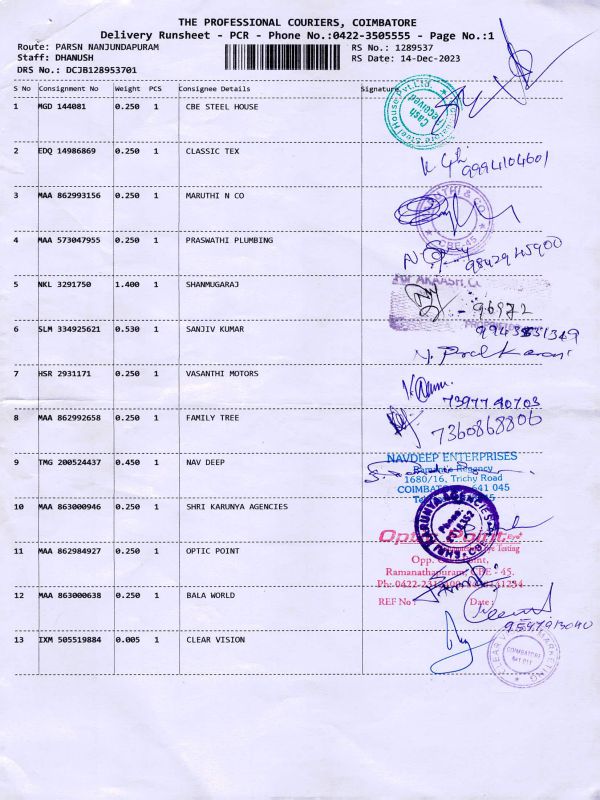 THE PROFESSIONAL COURIERS, COIMBATORE
Delivery Runsheet - PCR - Phone No.:0422-3505555 - Page No.:1
Route: PARSN NANJUNDAPURAM
RS No.: 1289537
Staff: DHANUSH
RS Date: 14-Dec-2023
DRS No.: DCJB128953701
S No Consignment No Weight PCS Consignee Details Signature
1 MGD 144081 0.250 1 CBE STEEL HOUSE
Cash Received
2 EDQ 14986869 0.250 1 CLASSIC TEX
9994104601
3 MAA 862993156 0.250 1 MARUTHI N CO
CBE-45
4 MAA 573047955 0.250 1 PRASWATHI PLUMBING
9842945900
5 NKL 3291750 1.400 1 SHANMUGARAJ
For AKAASH
96972
6 SLM 334925621 0.530 1 SANJIV KUMAR
7 HSR 2931171 0.250 1 VASANTHI MOTORS
7397740703
8 MAA 862992658 0.250 1 FAMILY TREE
7360868806
9 TMG 200524437 0.450 1 NAV DEEP
NAVDEEP ENTERPRISES
Regency
1680/16, Trichy Road
COIMBATORE 641 045
10 MAA 863000946 0.250 1 SHRI KARUNYA AGENCIES
SHRI KARUNYA AGENCIES
Phone:
11 MAA 862984927 0.250 1 OPTIC POINT
Optic Point
Eye Testing
Opp.
Ramanathapuram, CBE - 45.
REF No: Date:
12 MAA 863000638 0.250 1 BALA WORLD
9597913040
13 IXM 505519884 0.005 1 CLEAR VISION
CLEAR MARKETING
COIMBATORE